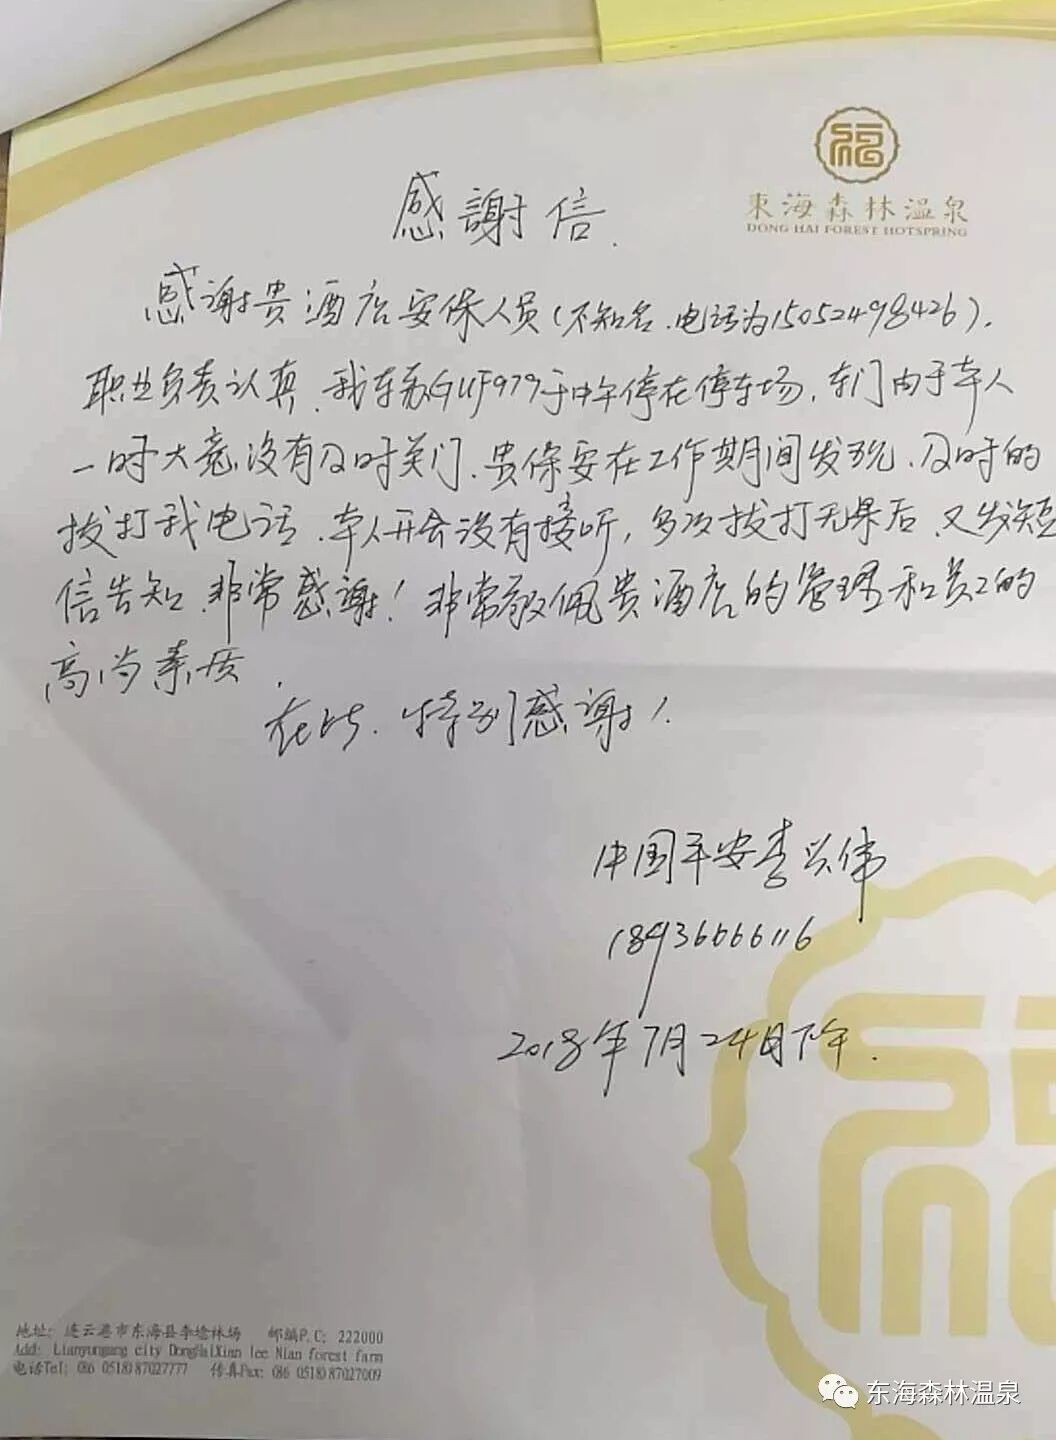 福
東海森林温泉
DONG HAI FOREST HOTSPRING
感謝信.
感谢贵酒店安保人员(不知名.电话为15052498426).
职业负责认真.我车苏GUF979于中午停在停车场.车门由于本人
一时大意没有及时关门.贵保安在工作期间发现.及时的
拔打我电话.本人开会没有接听,多次拔打无果后.又发短
信告知.非常感谢!非常敬佩贵酒店的管理和员工的
高尚素质.
在此.特别感谢!
中国平安李兴伟
18936666116
2018年7月24日下午.
地址: 连云港市东海县李埝林场 邮编P.C: 222000
Add: Lianyungang city DongHaiXian lee Nian forest farm
电话Tel: (86 0518)87027777 传真Fax: (86 0518)87027009
东海森林温泉